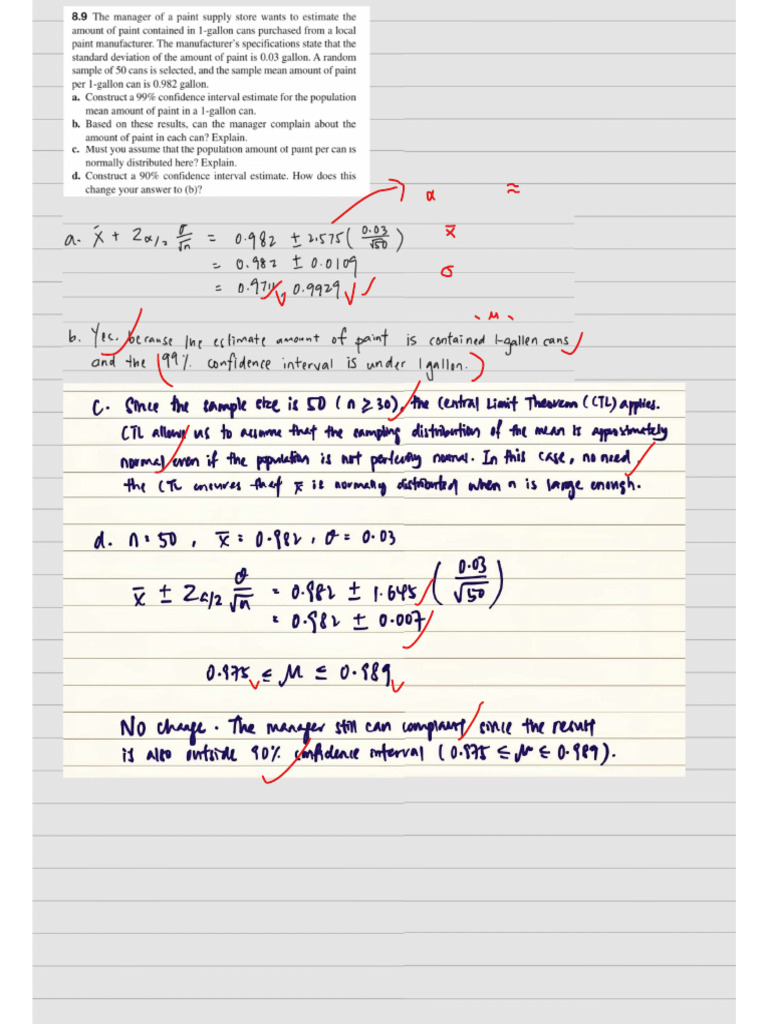 8.9 The manager of a paint supply store wants to estimate the
amount of paint contained in 1-gallon cans purchased from a local
paint manufacturer. The manufacturer's specifications state that the
standard deviation of the amount of paint is 0.03 gallon. A random
sample of 50 cans is selected, and the sample mean amount of paint
per 1-gallon can is 0.982 gallon.
a. Construct a 99% confidence interval estimate for the population
mean amount of paint in a 1-gallon can.
b. Based on these results, can the manager complain about the
amount of paint in each can? Explain.
c. Must you assume that the population amount of paint per can is
normally distributed here? Explain.
d. Construct a 90% confidence interval estimate. How does this
change your answer to (b)?
α ≈
a. x̄ + Zα/2 σ/√n = 0.982 ± 2.575 (0.03/√50) x̄
= 0.982 ± 0.0109 σ
= 0.9711, 0.9929
μ
b. Yes. because the estimate amount of paint is contained 1-gallen cans
and the 99% confidence interval is under 1 gallon.
c. Since the sample size is 50 (n ≥ 30), the Central Limit Theorem (CTL) applies.
CTL allows us to assume that the sampling distribution of the mean is approximately
normal even if the population is not perfectly normal. In this case, no need,
the CTL ensures that x̄ is normally distributed when n is large enough.
d. n = 50, x̄ = 0.982, σ = 0.03
x̄ ± Zα/2 σ/√n = 0.982 ± 1.645 (0.03/√50)
= 0.982 ± 0.007
0.975 ≤ μ ≤ 0.989
No change. The manager still can complaint since the result
is also outside 90% confidence interval (0.975 ≤ μ ≤ 0.989).